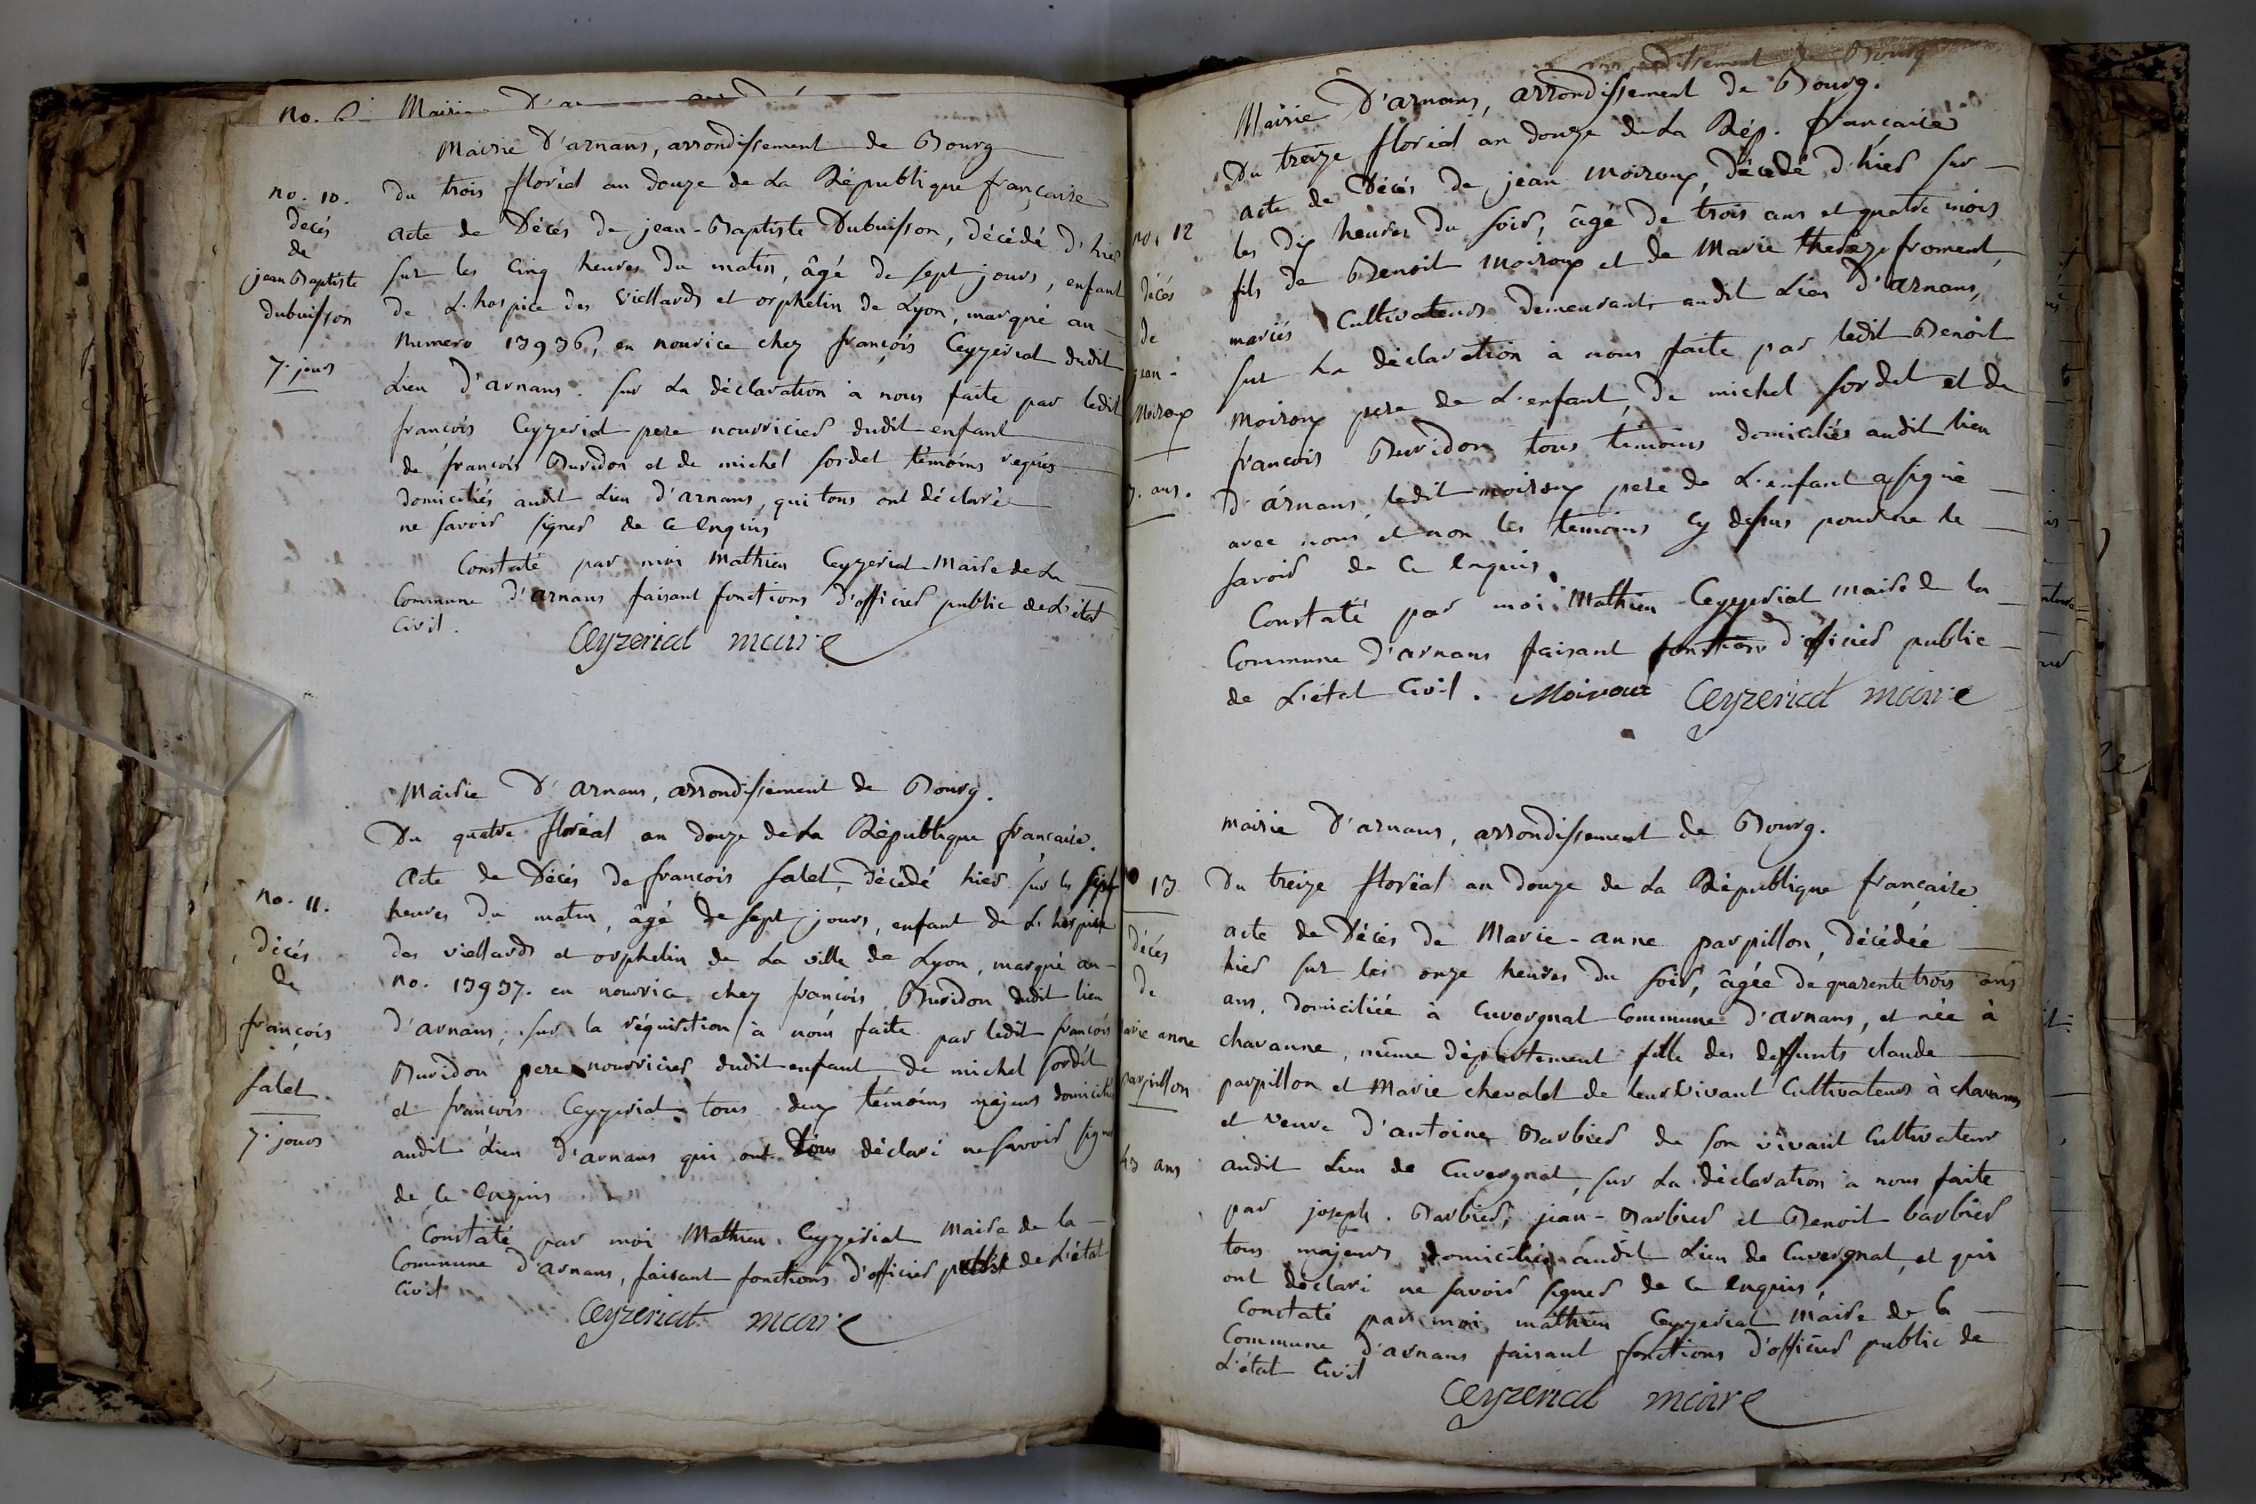 no.
Mairie D'ar
Mairie D'arnans, arrondissement de Bourg
no. 10.
décés
de
jean Baptiste
dubuisson
7. jours
Du trois floréal an douze de La République française
acte de Décés de jean-Baptiste Dubuisson, décédé d'hier
sur les cinq heures du matin, âgé de sept jours, enfant
de L'hospice des viellards et orphelin de Lyon, marqué au
Numero 13936, en nourice chez françois Ceyzeriat dudit
Lieu d'arnans. sur La déclaration à nous faite par ledit
françois Ceyzeriat pere nourricier dudit enfant
de françois Buridon et de michel sordet témoins requis
domiciliés audit Lieu d'arnans, qui tous ont déclaré
ne savoir signer de ce enquis
Constaté par moi Mathieu Ceyzeriat Maire de La
Commune d'arnans faisant fonctions d'officier public de L'état
Civil.
Ceyzeriat maire
Mairie D'arnans, arrondissement de Bourg.
no. 11.
décés
de
françois
salet.
7. jours
Du quatre floréal an douze de La République française.
Acte de Décés de françois salet, décédé hier sur les sept
heures du matin, âgé de sept jours, enfant de L'hospice
des viellards et orphelin de La ville de Lyon, marqué au
no. 13937. en nourrice chez françois Buridon dudit lieu
d'arnans, sur la réquisition à nous faite par ledit françois
Buridon pere nourricier dudit enfant de michel sordet
et françois Ceyzeriat tous deux témoins majeurs domiciliés
audit Lieu d'arnans qui ont tous déclaré ne savoir signer
de ce enquis
Constaté par moi Mathieu Ceyzeriat Maire de la
Commune d'arnans, faisant fonctions d'officier public de L'état
Civil
Ceyzeriat maire
arrondissement de Bourg
Mairie D'arnans, arrondissement de Bourg.
no. 12
décés
de
jean-
Moiroux
3. ans.
Du treize floréal an douze de La Rép. française
acte de Décés de jean Moiroux, décédé d'hier sur
les dix heures du soir, âgé de trois ans et quatre mois
fils de Benoit Moiroux et de Marie therèze froment,
mariés Cultivateurs demeurants audit Lieu D'arnans,
sur La déclaration à nous faite par ledit Benoit
Moiroux pere de L'enfant, de michel sordet et de
françois Buridon tous témoins domiciliés audit lieu
d'arnans, ledit moiroux pere de L'enfant a signé
avec nous et non les témoins cy dessus pour ne le
savoir de ce enquis.
Constaté par moi Mathieu Ceyzeriat maire de la
Commune d'arnans faisant fonctions d'officier public
de L'état Civil. Moiroux Ceyzeriat maire
mairie D'arnans, arrondissement de Bourg.
13
décés
de
arie anne
parpillon
43 ans
Du treize floréal an douze de La République française.
acte de Décés de Marie-anne parpillon, décédée
hier sur les onze heures du soir, âgée de quarente trois ans
ans, domiciliée à Cuvergnat Commune d'arnans, et née à
chavanne, même département fille des deffunts claude
parpillon et Marie chevalet de leur vivant Cultivateurs à chavannes
et veuve d'antoine Barbier de son vivant Cultivateur
audit Lieu de Cuvergnat, sur La déclaration à nous faite
par joseph. Barbier, jean-Barbier et Benoit barbier
tous majeurs domiciliés audit Lieu de Cuvergnat, et qui
ont déclaré ne savoir signer de ce enquis,
Constaté par moi mathieu Ceyzeriat Maire de la
Commune d'arnans faisant fonctions d'officier public de
L'état Civil
Ceyzeriat maire